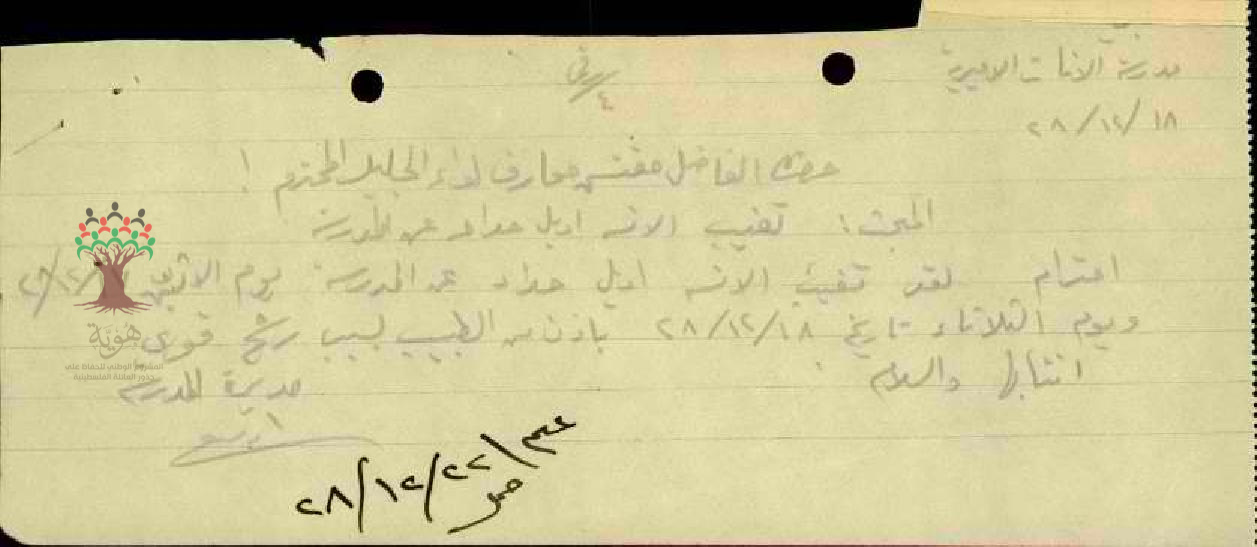 مدرسة الاناث الاميرية
٢٨/١٢/١٨
حضرة الفاضل مفتش معارف لواء الجليل المحترم !
المبحث : تغيب الانسه اديل حداد عن المدرسة
احترام لقد تغيبت الانسه اديل حداد عن المدرسة يوم الاثنين
ويوم الثلاثاء تاريخ ٢٨/١٢/١٨ باذن من الطبيب لسبب رشح قوي
انتابها والسلام
مديرة المدرسة
٢٨/١٢/٢٢
هوية
المشروع الوطني للحفاظ على
جذور العائلة الفلسطينية